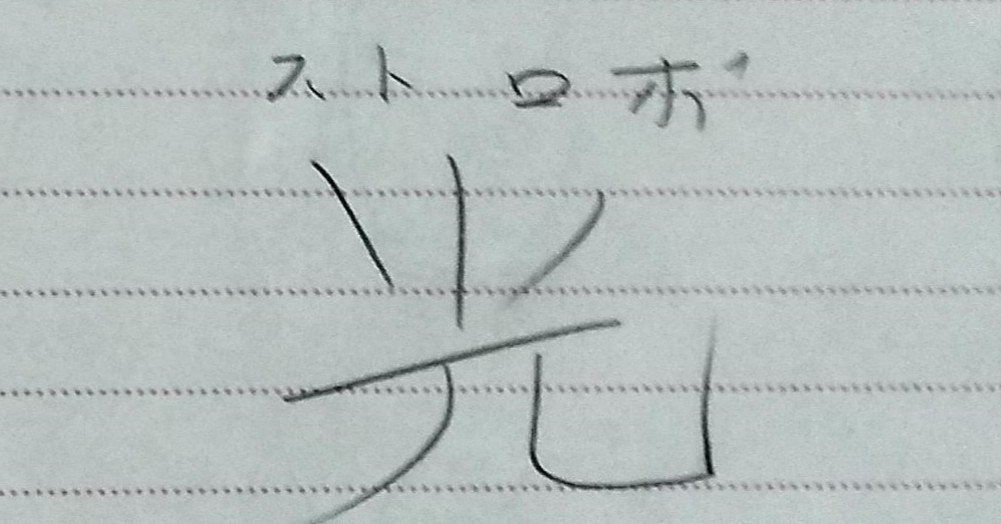 ストロボ
光